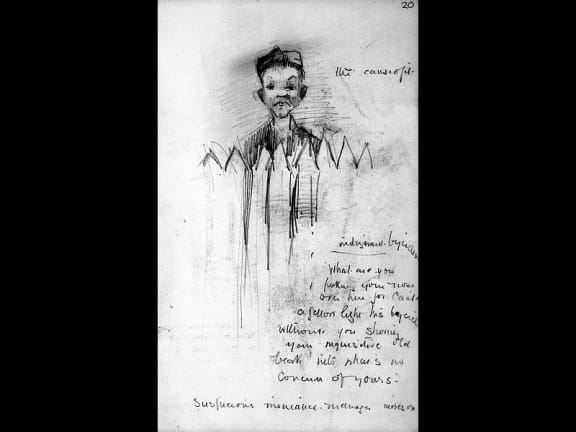 20
the cause of it.
indignant
What are you
poking your nose
over here for Can't
a fellow light his bycicle
without you shoving
your inquisitive old
beak into what's no
Concern of yours:
Suspicious insurance manager moves on